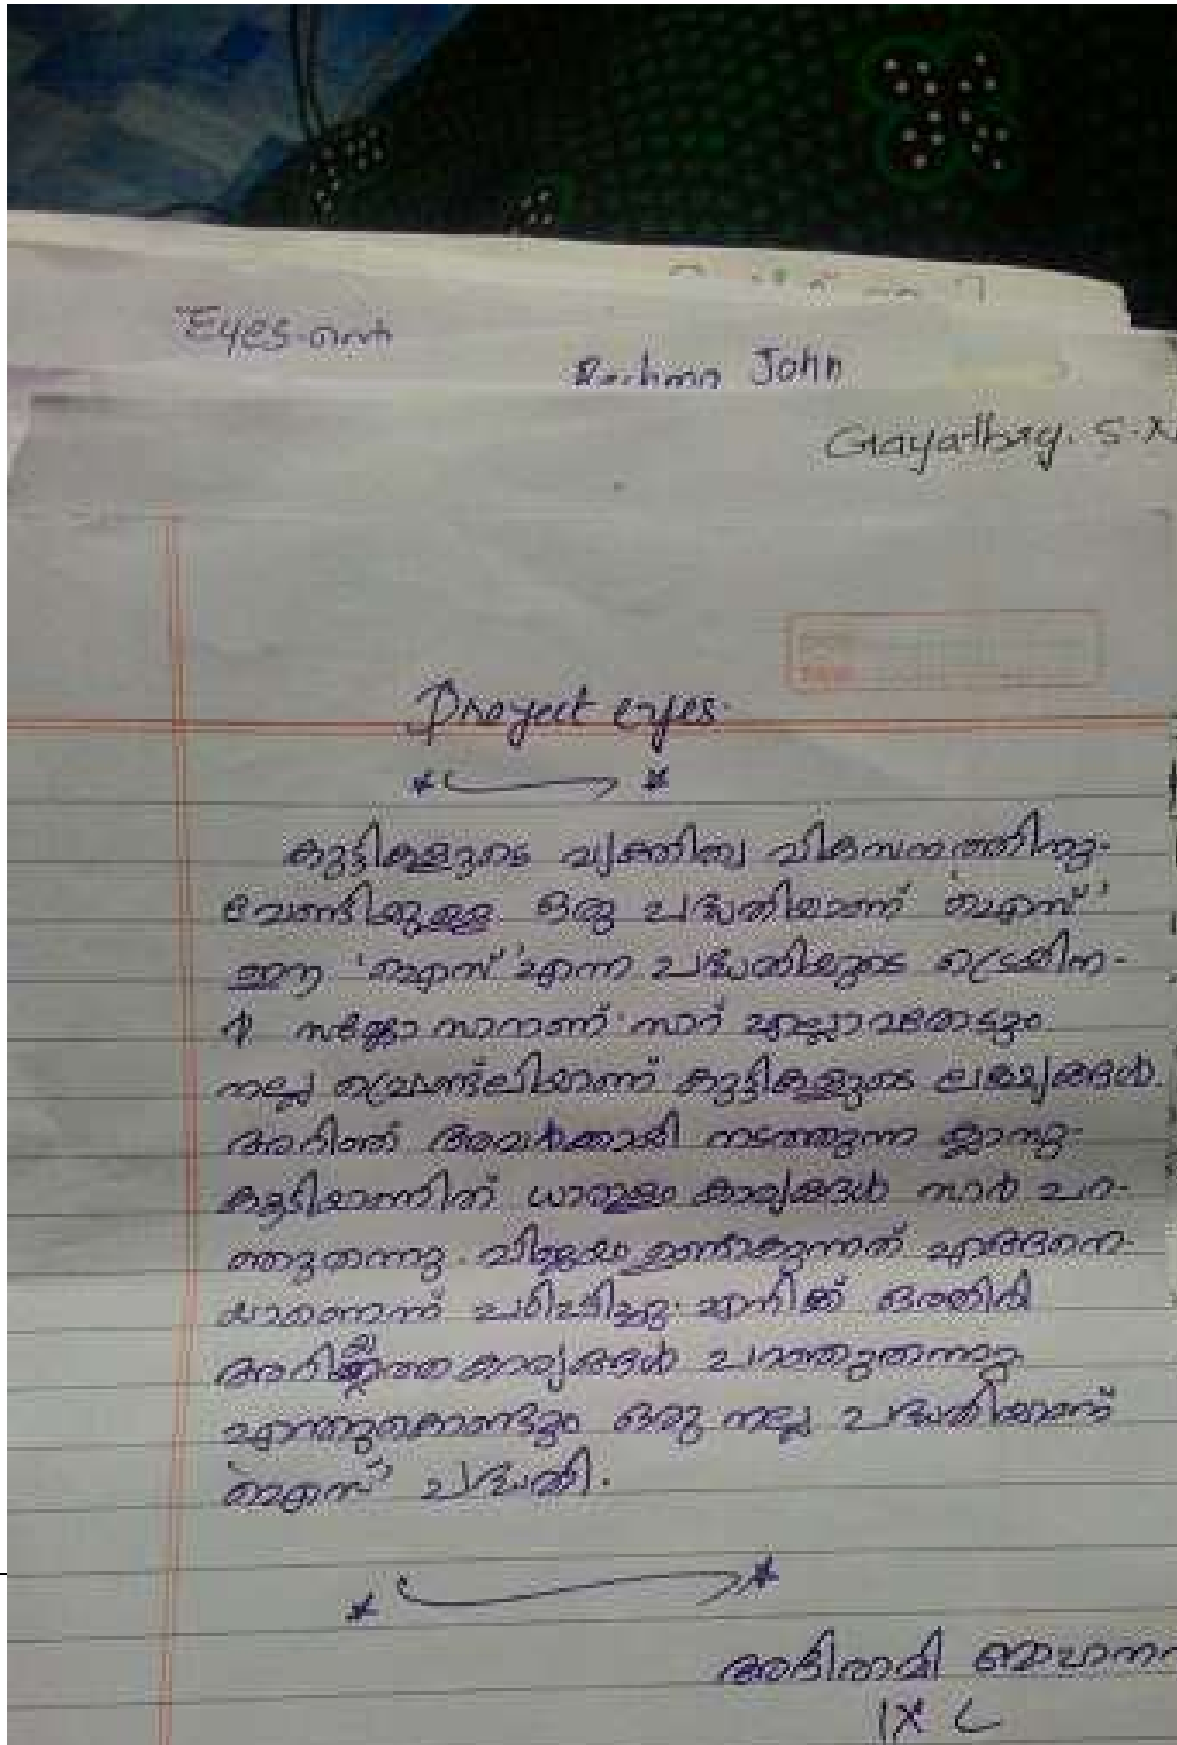 Eyes-ന്റെ
John
Gayathry. S-X
Project eyes
കുട്ടികളുടെ വ്യക്തിത്വ വികസനത്തിനു-
വേണ്ടിയുള്ള ഒരു പദ്ധതിയാണ് 'ഐസ്'
ഈ 'ഐസ്' എന്ന പദ്ധതിയുടെ ട്രെയിന-
ർ സാറാണ് സാറ് എല്ലാവരോടും
നല്ല ഫ്രണ്ട്‌ലിയാണ് കുട്ടികളുടെ ലക്ഷ്യങ്ങൾ
അറിഞ്ഞ് അവർക്കായി നടത്തുന്ന ക്ലാസ്സു-
കൂടിയാണിത് ധാരാളം കാര്യങ്ങൾ സാർ പറ-
ഞ്ഞുതന്നു. വിജയം ഉണ്ടാകുന്നത് എങ്ങനെ-
യാണെന്ന് പഠിപ്പിച്ചു എനിക്ക് ഒത്തിരി
അറിയാത്ത കാര്യങ്ങൾ പറഞ്ഞുതന്നു
എന്തുകൊണ്ടും ഒരു നല്ല പദ്ധതിയാണ്
'ഐസ്' പദ്ധതി.
അഭിരാമി മോഹനൻ
IX C